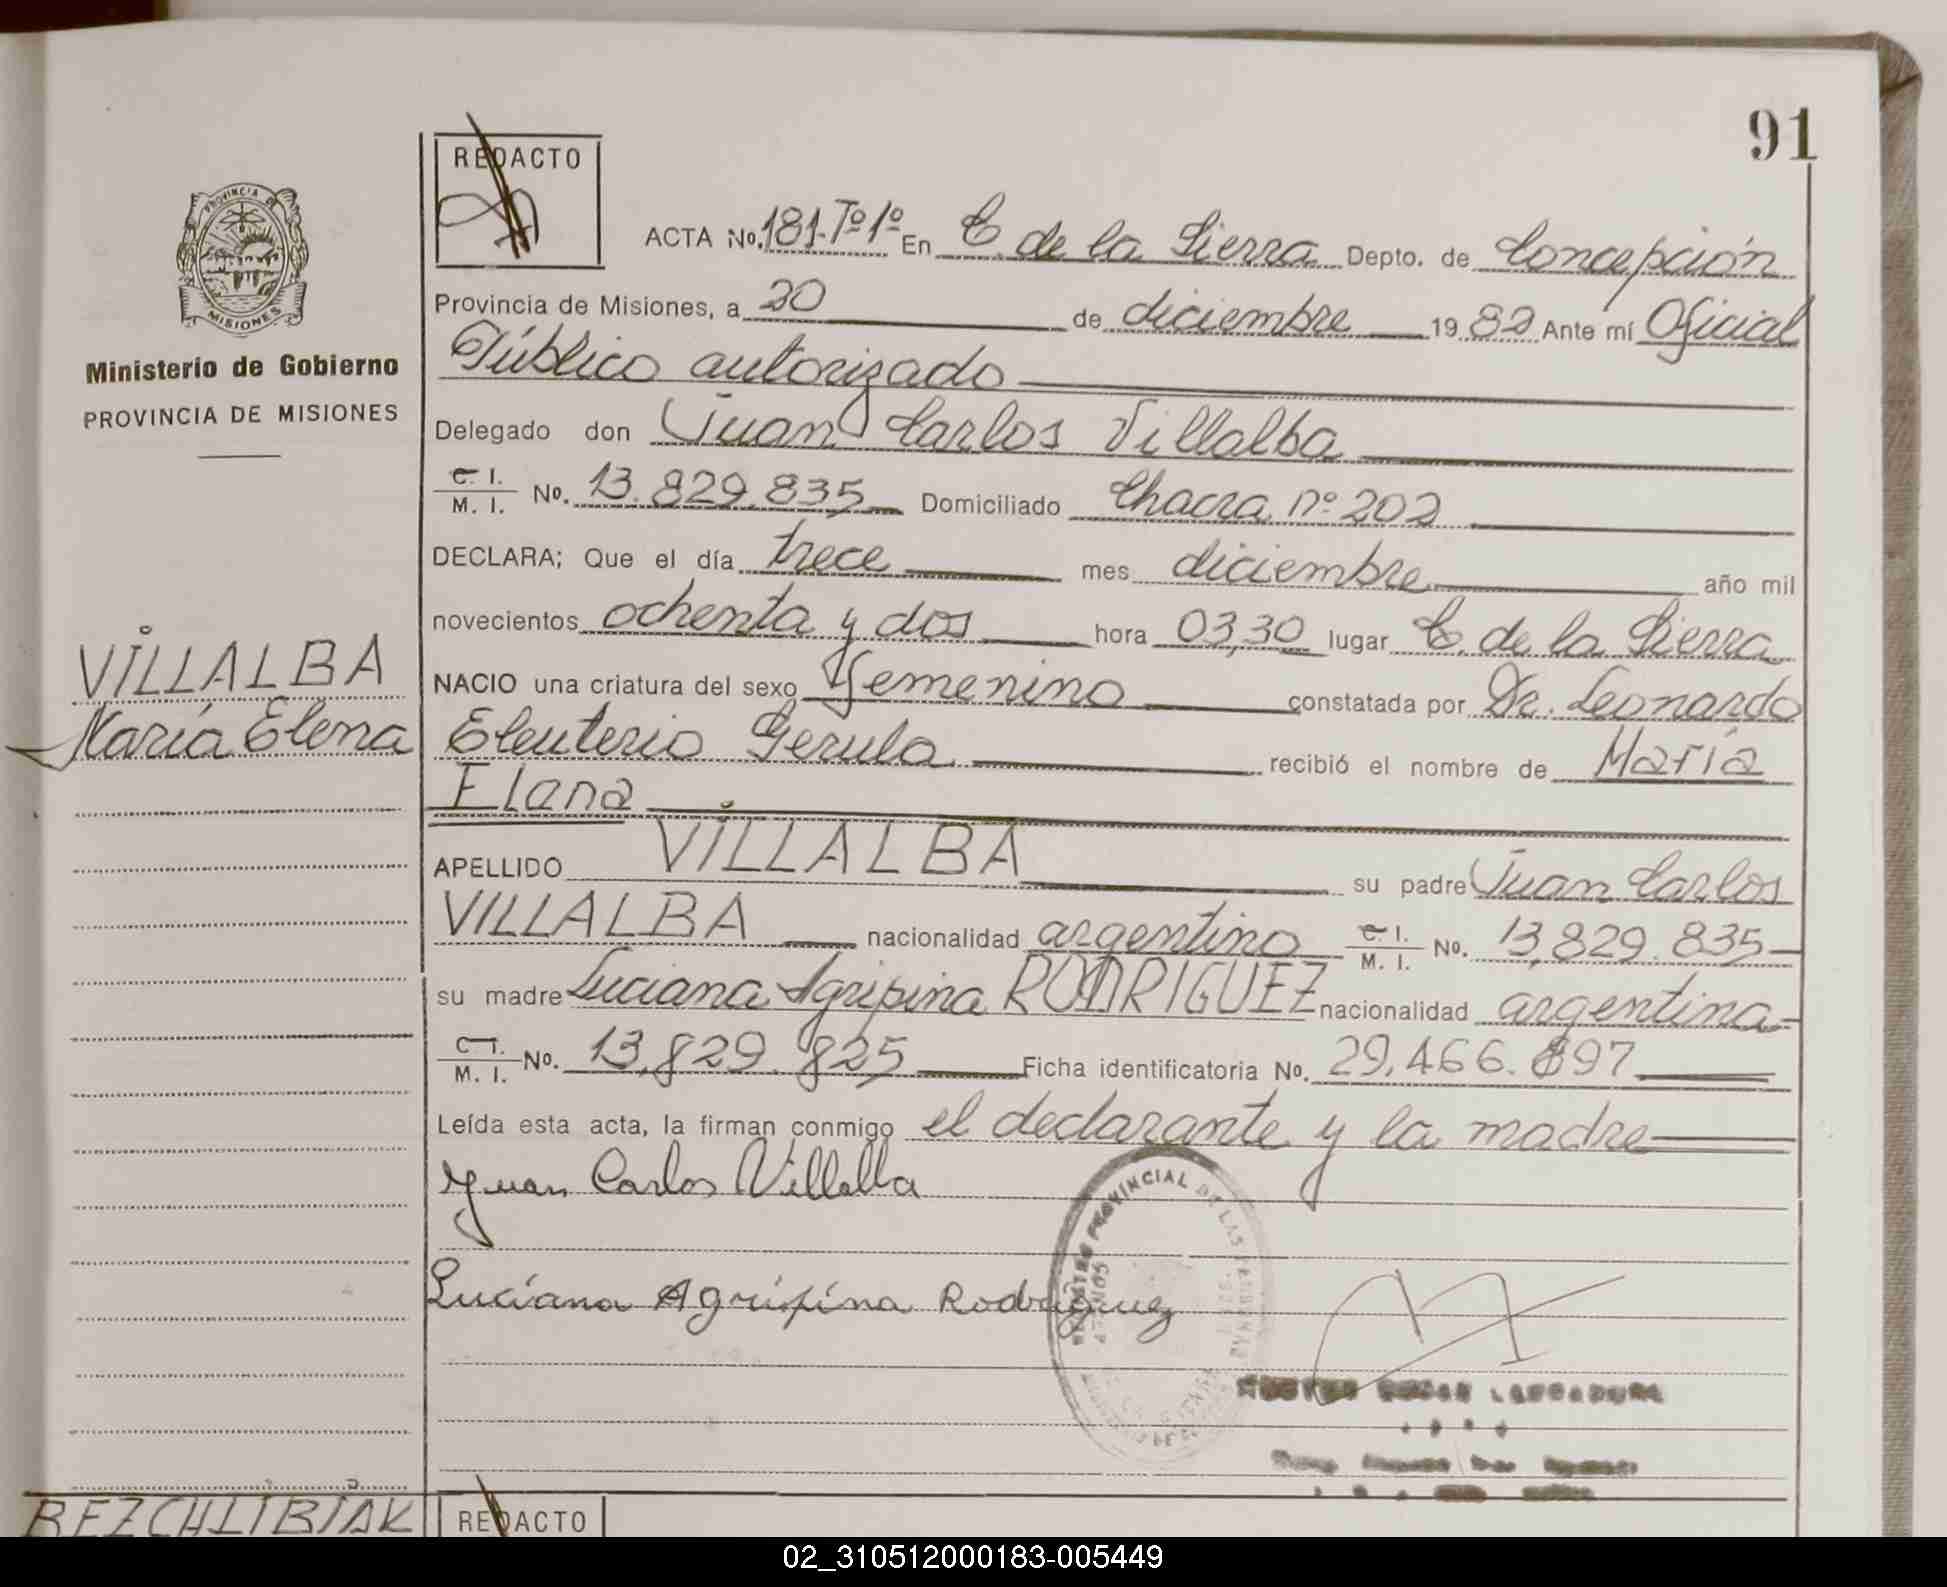 91
REDACTO
PROVINCIA DE
MISIONES
Ministerio de Gobierno
PROVINCIA DE MISIONES
ACTA No. 181-Tº1º En C. de la Sierra Depto. de Concepción
Provincia de Misiones, a 20 de diciembre 1982 Ante mí Oficial
Público autorizado
Delegado don Juan Carlos Villalba
C. I. / M. I. No. 13.829.835 Domiciliado Chacra nº 202
DECLARA; Que el día trece mes diciembre año mil
novecientos ochenta y dos hora 03,30 lugar C. de la Sierra
VILLALBA
María Elena
NACIO una criatura del sexo Femenino constatada por Dr. Leonardo
Eleuterio Gerula recibió el nombre de María
Elena
APELLIDO VILLALBA su padre Juan Carlos
VILLALBA nacionalidad argentino C. I. / M. I. No. 13.829.835
su madre Luciana Agripina RODRIGUEZ nacionalidad argentina
C. I. / M. I. No. 13.829.825 Ficha identificatoria No. 29.466.897
Leída esta acta, la firman conmigo el declarante y la madre
Juan Carlos Villalba
Luciana Agripina Rodriguez
PROVINCIAL DE LAS PERSONAS
BEZCHLIBIAK
REDACTO
02_310512000183-005449